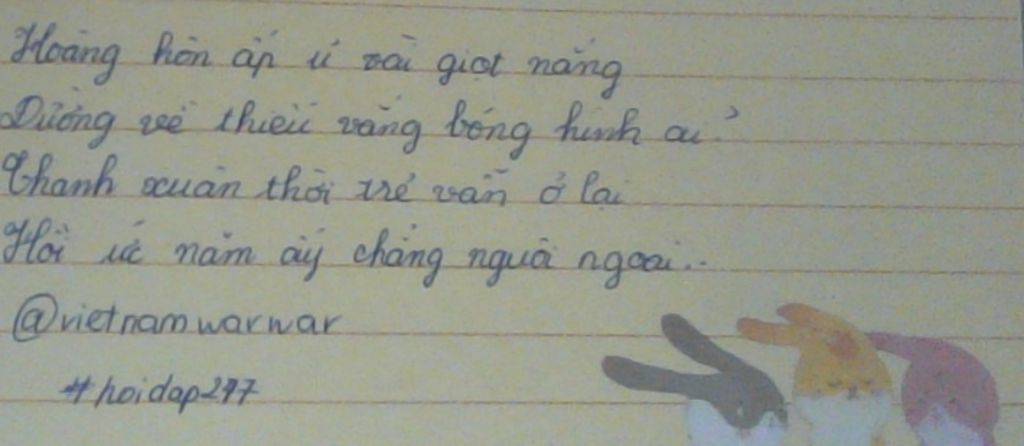 Hoàng hôn ấp ủ vài giọt nắng
Đường về thiếu vắng bóng hình ai?
Thanh xuân thời trẻ vẫn ở lại
Hồi ức năm ấy chẳng nguôi ngoai..
@vietnamwarwar
#hoidap247